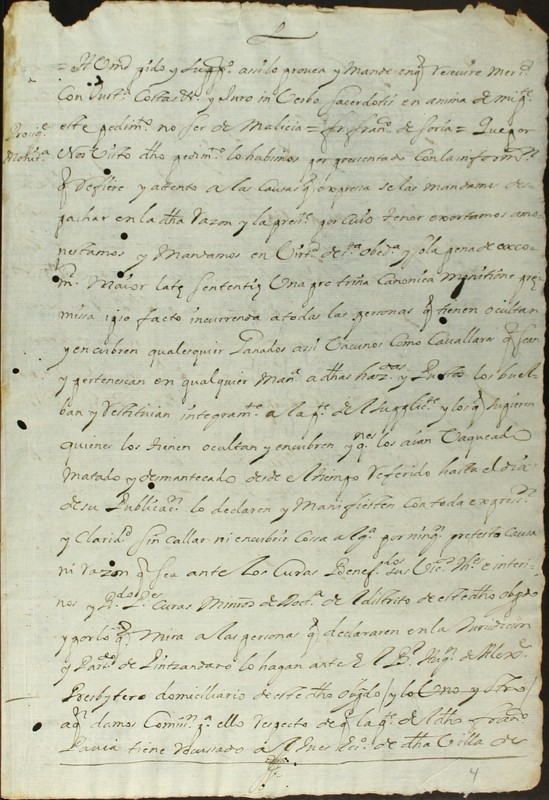 = A Vmd pido y supp.co assi lo provea y Mande en q. Resevire Mer.d
Con Just.a Costas &.a y Juro in Verbo sacerdotis en anima de mi p.te
este pedim.to no ser de Malicia = fr. fran.co de soria = Que por
Proveim.to
Nos Visto dho pedim.to lo habimos por presentado Con la inform.on
q. Refiere y atento a las Causas q. expresa se las mandamos des-
pachar en la dha Razon y la pres.te por Cuio tenor exortamos amo-
nestamos y Mandamos en Virt.d de s.ta obed.a y so la pena de exco-
m.on Maior late sententie Una pro trina Canonica Monitione pre-
missa ipso facto incurrenda a todas las personas q. tienen ocultan
y encubren qualesquier Ganados assi Vacunos Como Cavallares q. sean
y pertenescan en qualquier Man.a a dhas haz.das y Justa los buel-
ban y Restituian integram.te a la p.te del supplic.te y los q. supieren
quienes los tienen ocultan y encubren y q.nes los aian Vaqueado
Matado y desmantecado desde el tiempo Referido hasta el dia
de su Publicac.on lo declaren y Manifiesten Con toda expres.on
y Clarid.d sin callar ni encubrir Cossa alg.a por ning.n pretexto Causa
ni Razon q. sea ante los Curas Benef.dos sus Vic.s ths.e interi-
nos y P.P. Curas Minros de Doct.a del distrito de este dho Obpdo
y por lo q. Mira a las personas q. declararen en la Jurisdicion
y Part.do de Pintzandaro lo hagan ante El B.r
Presbytero domiciliario de este dho obpdo / y lo Uno y otro /
a q.n damos Comiss.n p.a ello respecto de q. la p.te del dho fran.co
Pavia tiene Recussado al Jues Ec.o de dha Villa de
4